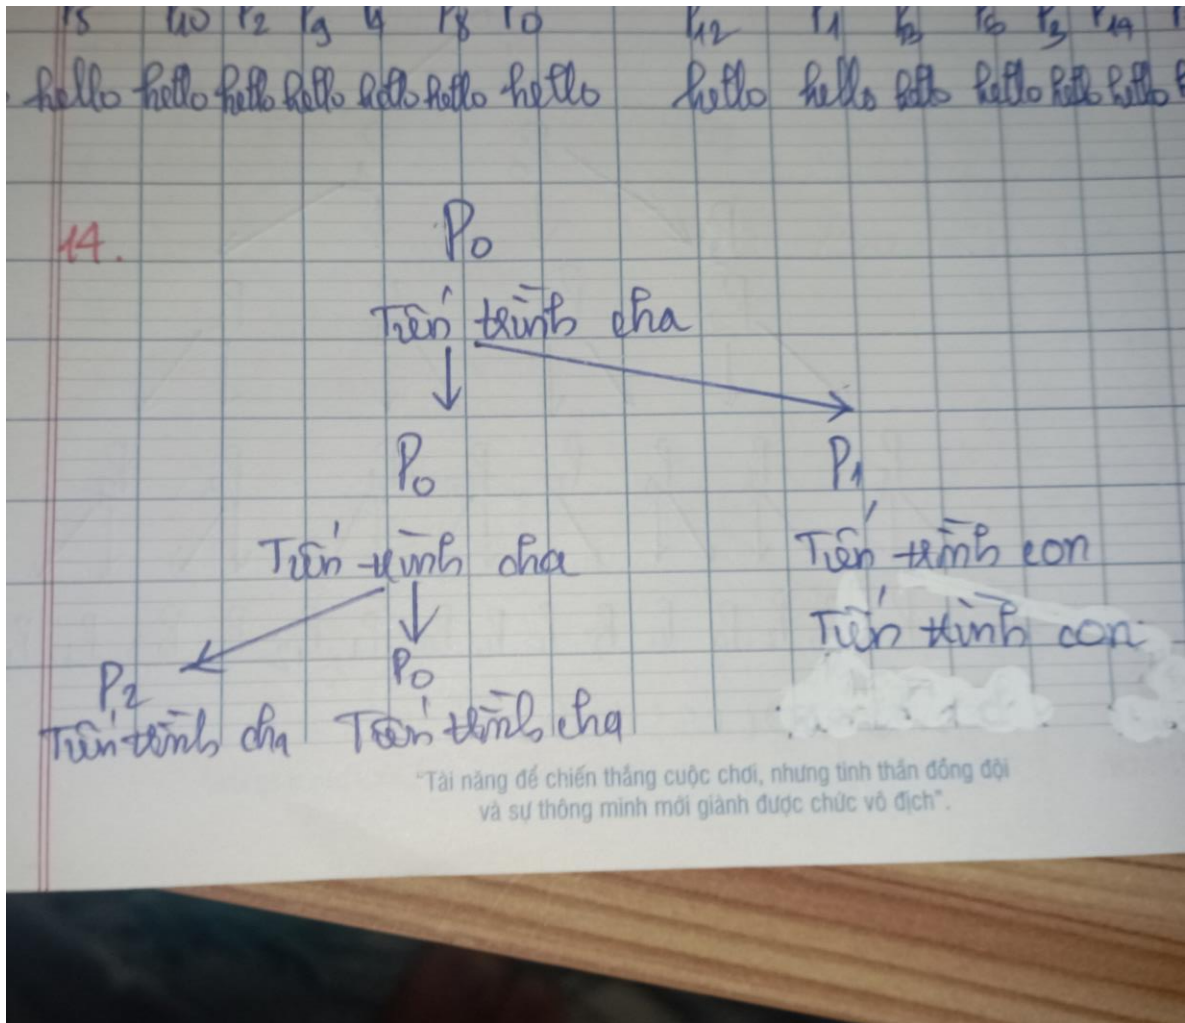 hello hello hello hello hello hello hello hello hello hello hello hello hello
14.
P0
Tiến trình cha
P0 P1
Tiến trình cha Tiến trình con
Tiến trình con
P2 P0
Tiến trình cha Tiến trình cha
"Tài năng để chiến thắng cuộc chơi, nhưng tinh thần đồng đội
và sự thông minh mới giành được chức vô địch".